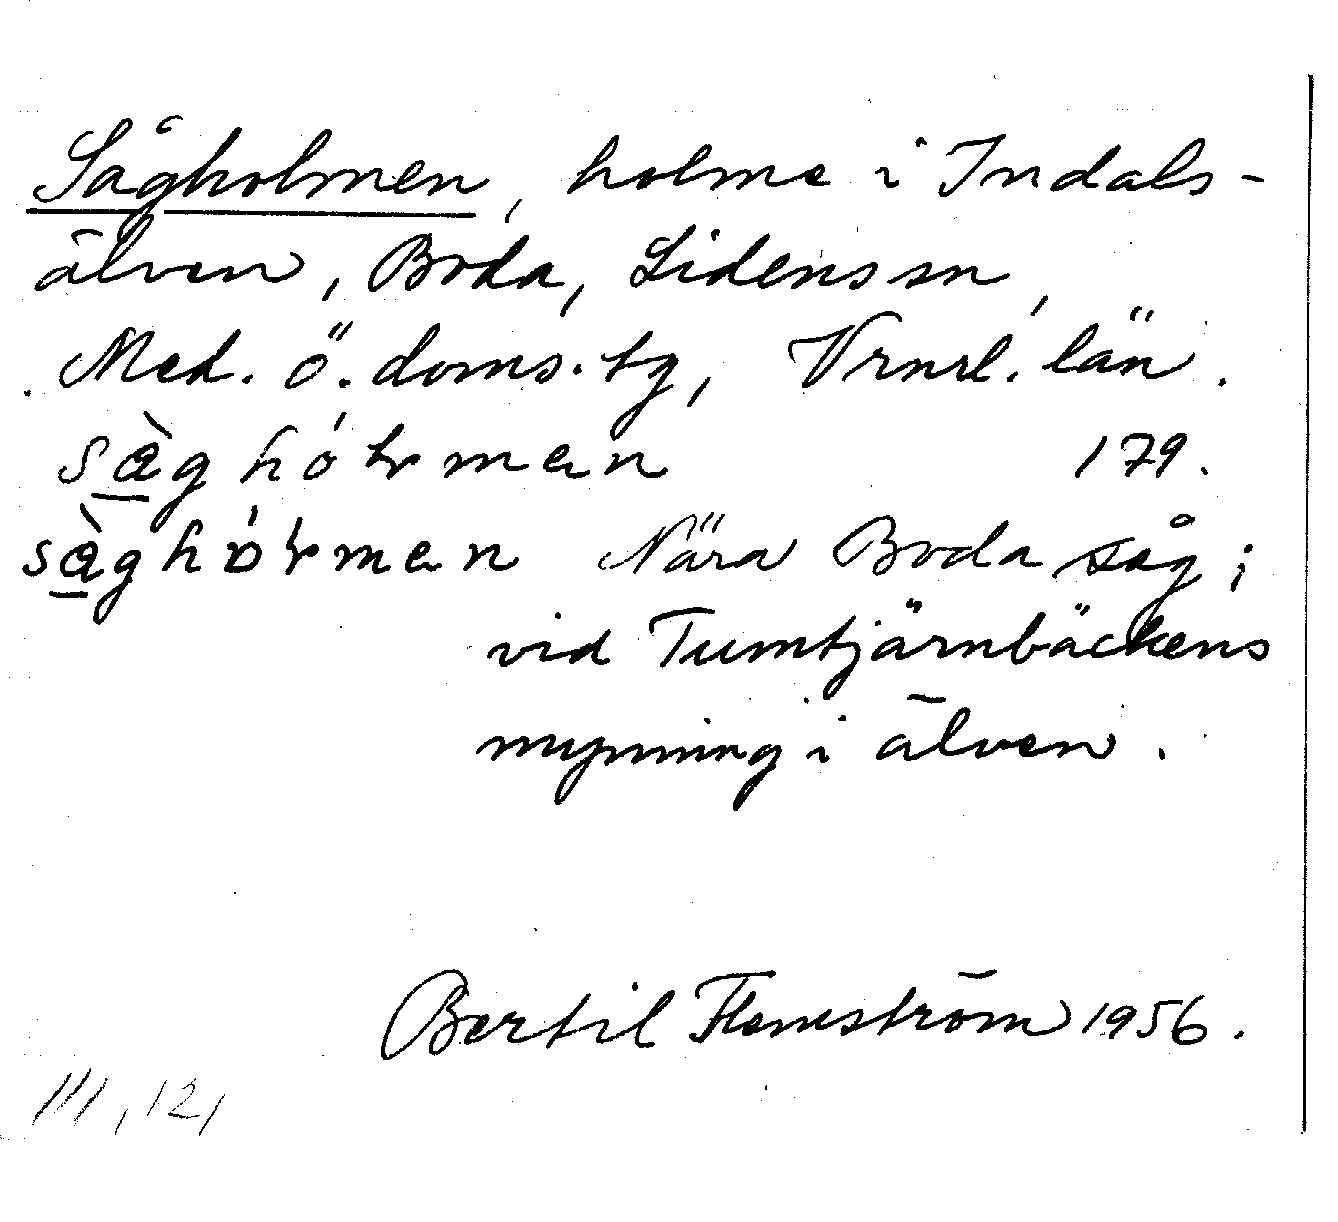 Sågholmen, holme i Indals-
älven, Boda, Lidens sn,
Med. ö. doms. tg, Vrnrl. län.
179.
Nära Boda såg;
vid Tumtjärnbäckens
mynning i älven.
Bertil Flemström 1956.
111, 121